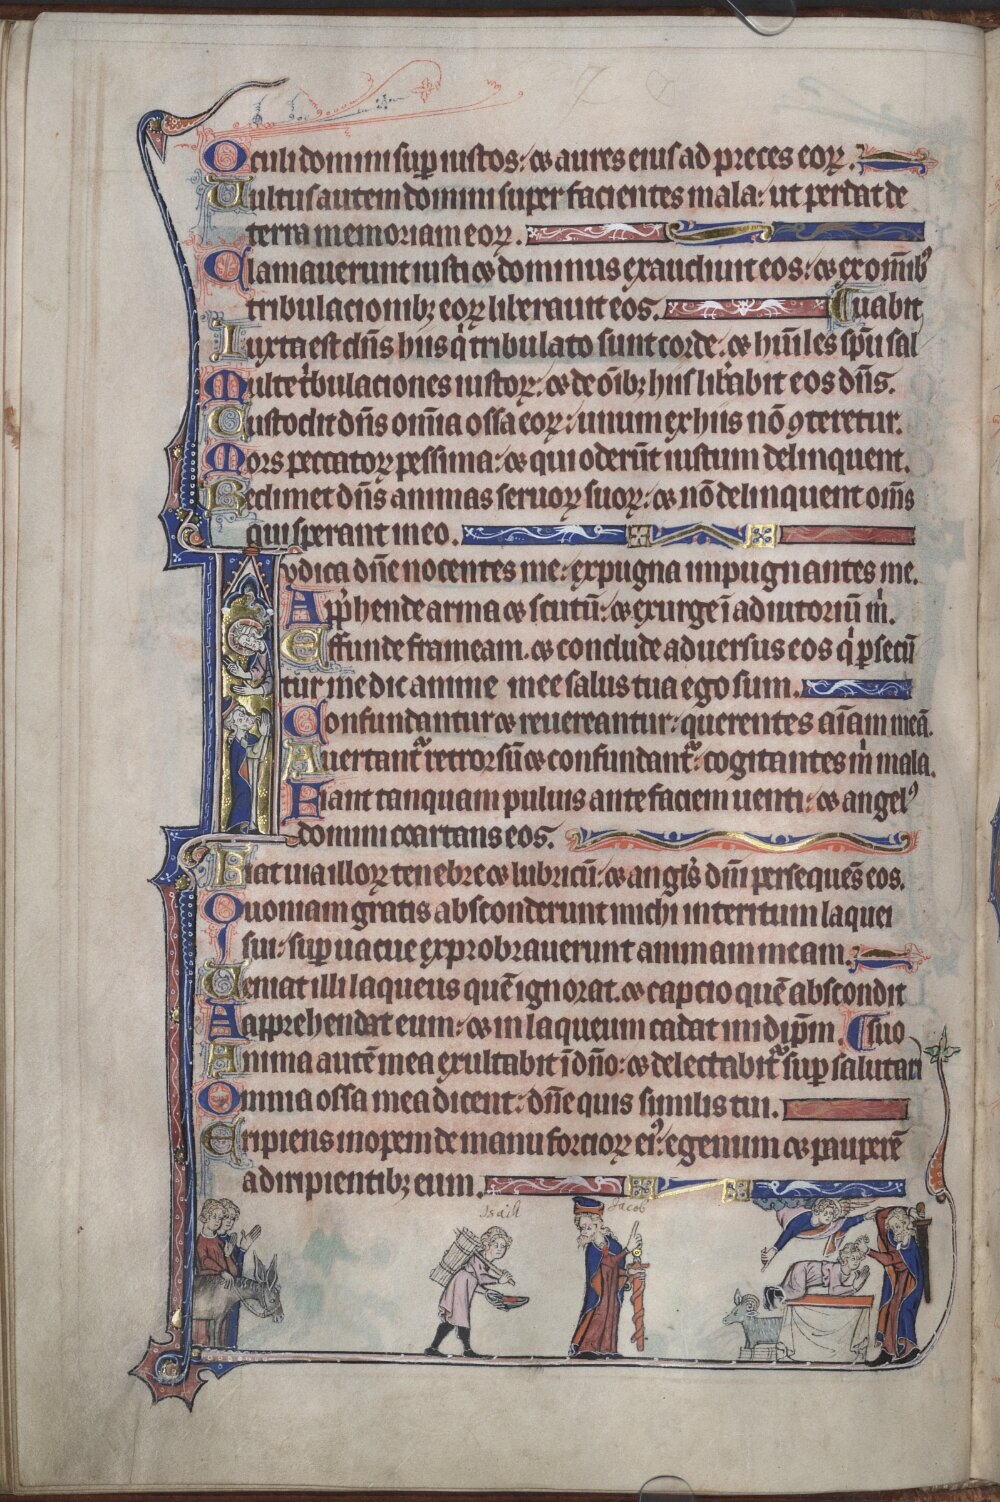 Oculi domini sup̱ iustos: ⁊ aures eius ad p̄ces eoꝝ.
Uultus autem domini super facientes mala: ut perdat de
terra memoriam eoꝝ.
Clamauerunt iusti ⁊ dominus exaudiuit eos: ⁊ ex om̄ib⁹
tribulacionibꝫ eoꝝ liberauit eos. Cuabit
Iuxta est dn̄s hiis q̍ tribulato sunt corde: ⁊ hūiles sp̄u sal
Multe t̍bulaciones iustoꝝ: ⁊ de oībꝫ hiis lib̍abit eos dn̄s.
Custodit dn̄s omīa ossa eoꝝ: unum ex hiis nō ꝯteretur.
Mors peccatoꝝ pessima: ⁊ qui oderūt iustum delinquent.
Redimet dn̄s animas seruoꝝ suoꝝ: ⁊ nō delinquent om̄s
qui sperant in eo.
Iudica dn̄e nocentes me: expugna impugnantes me.
App̱hende arma ⁊ scutū: ⁊ exurge ī adiutoriū m̍.
Effunde frameam. ⁊ conclude aduersus eos q̍ ꝑsecū
tur me dic anime mee salus tua ego sum.
Confundantur ⁊ reuereantur: querentes aīam meā.
Auertant᷑ retrorsū ⁊ confundant᷑: cogitantes m̍ mala.
Fiant tanquam puluis ante faciem uenti: ⁊ angel⁹
domini coartans eos.
Fiat uia illoꝝ tenebre ⁊ lubricū: ⁊ angl̍s dn̄i persequēs eos.
Quoniam gratis absconderunt michi interitum laquei
sui: sup̱uacue exprobrauerunt animam meam.
Ueniat illi laqueus quē ignorat. ⁊ capcio quē abscondit
Aapprehendat eum: ⁊ in laqueum cadat in id ip̄m. Csuo
Anima autē mea exultabit ī dn̄o: ⁊ delectabit᷑ sup̱ salutari
Omnia ossa mea dicent: dn̄e quis similis tui.
Eripiens inopem de manu forcioꝝ ei⁹: egenum ⁊ pauperē
a diripientibꝫ eum.
Isaac Jacob